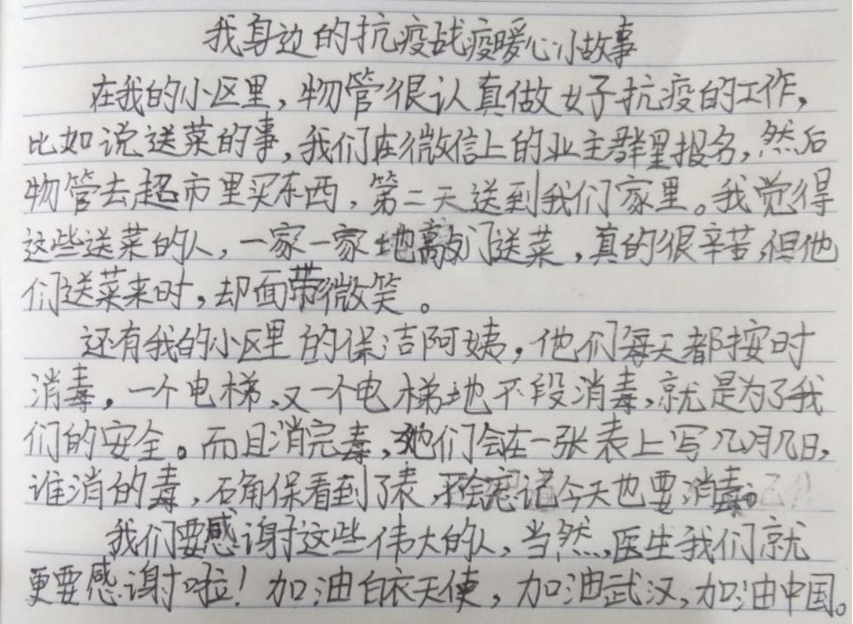 我身边的抗疫战疫暖心小故事
在我的小区里，物管很认真做好抗疫的工作，
比如说送菜的事，我们在微信上的业主群里报名，然后
物管去超市里买东西，第二天送到我们家里。我觉得
这些送菜的人，一家一家地敲门送菜，真的很辛苦，但他
们送菜来时，却面带微笑。
还有我的小区里的保洁阿姨，他们每天都按时
消毒，一个电梯，又一个电梯地不段消毒，就是为了我
们的安全。而且消完毒，她们会在一张表上写几月几日，
谁消的毒，石角保看到了表，不会忘记今天也要消毒。
我们要感谢这些伟大的人，当然，医生我们就
更要感谢啦！加油白衣天使，加油武汉，加油中国。